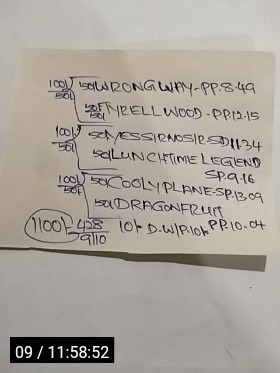 100/ 50/ WRONG WAY-PP.8.49
50/ 50/ TYRELL WOOD-PP.12.15
100/ 50/ YESSIRNOSIR SD11.34
50/ 50/ LUNCHTIME LEGEND
SP.9.16
100/ 50/ COOLYPLANE-SP.13.09
50/ 50/ DRAGONFRUIT
PP.10.04
1100/- 428 10/- D.W/P.10/-
9/10
09 / 11:58:52